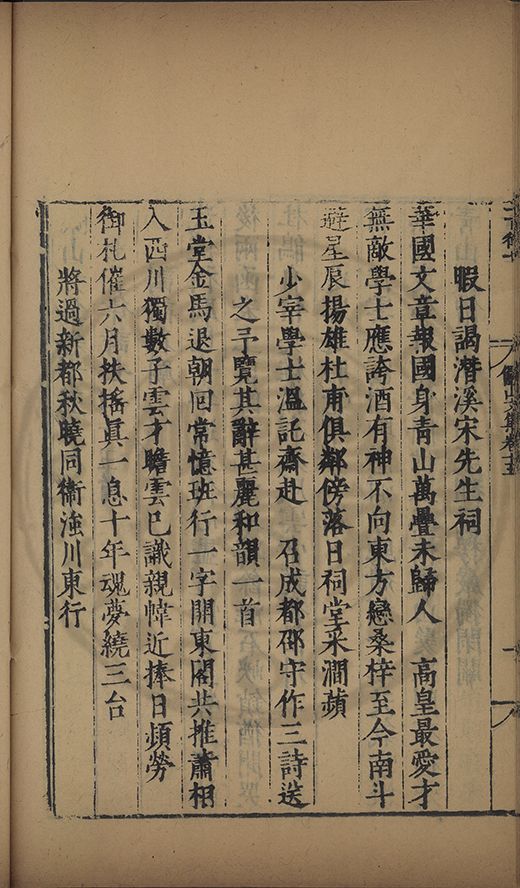 暇日謁潛溪宋先生祠
華國文章報國身青山萬疊未歸人　高皇最愛才
無敵學士應誇酒有神不向東方戀桑梓至今南斗
避星辰揚雄杜甫俱鄰傍落日祠堂采澗蘋
少宰學士溫託齋赴　召成都邵守作三詩送
之予覽其辭甚麗和韻一首
玉堂金馬退朝回常憶班行一字開東閣共推蕭相
入西川獨數子雲才瞻雲已識親幃近捧日頻勞
御札催六月扶搖眞一息十年魂夢繞三台
將過新都秋曉同衛強川東行